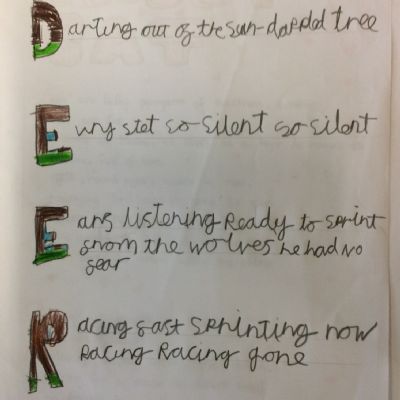 Darting out of the sun-dappld tree
Evry stet so-silent so silent
Ears listening Ready to sprint
from the wolves he had no
fear
Racing fast sprinting now
Racing Racing gone